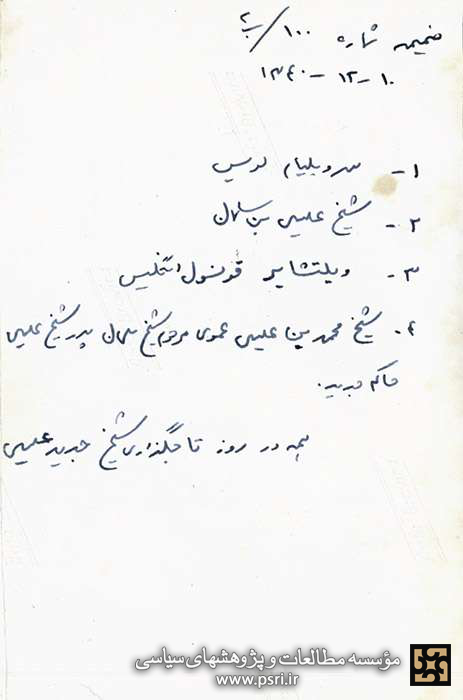 ضمیمه شماره ۱۰۰/ب۲
۱۰-۱۲-۱۳۴۰
۱- سر ویلیام لوس
۲- شیخ عیسی بن سلمان
۳- ویلتشایر قونسول انگلیس
۴- شیخ محمد بن عیسی عموی مرحوم شیخ سلمان پدر شیخ عیسی
حاکم جدید.
همه در روز تاجگذاری شیخ جدید عیسی
مؤسسه مطالعات و پژوهشهای سیاسی
www.psri.ir